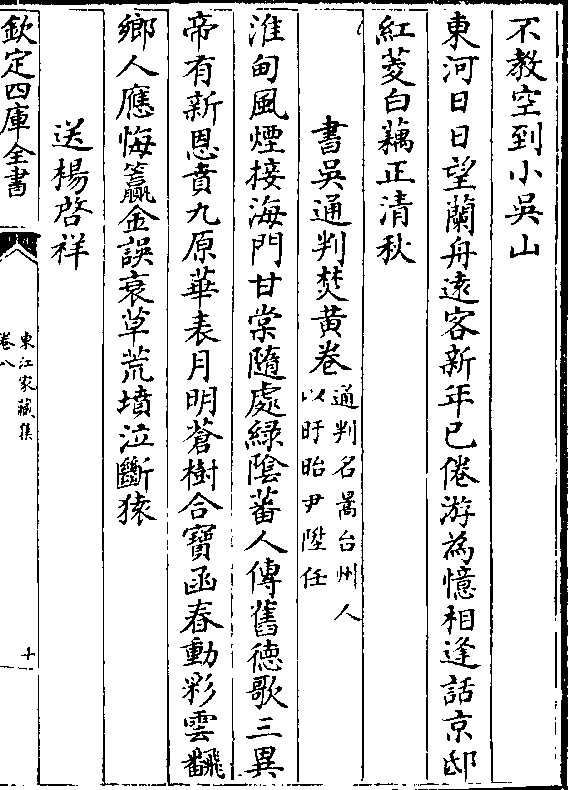 不教空到小吳山
東河日日望蘭舟遠客新年已倦游為憶相逢話京邸
紅菱白藕正清秋
書吳通判焚黄卷通判名暠台州人
以盱眙尹陞任
淮甸風煙接海門甘棠隨處緑陰蕃人傳舊徳歌三異
帝有新恩賁九原華表月明蒼樹合寶函春動彩雲飜
鄉人應悔籯金誤衰草荒墳泣斷猿
送楊啓祥
欽定四庫全書
東江家藏集
卷八
十